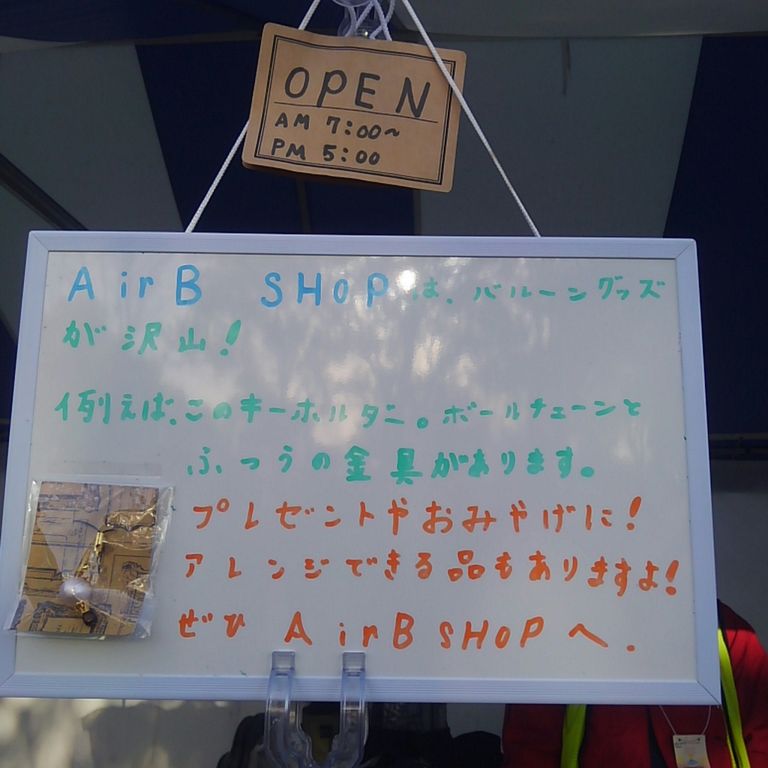 OPEN
AM 7:00~
PM 5:00
AirB SHOPは、バルーングッズ
が沢山!
例えば、このキーホルダー。ボールチェーンと
ふつうの金具があります。
プレゼントやおみやげに!
アレンジできる品もありますよ!
ぜひ AirB SHOPへ.